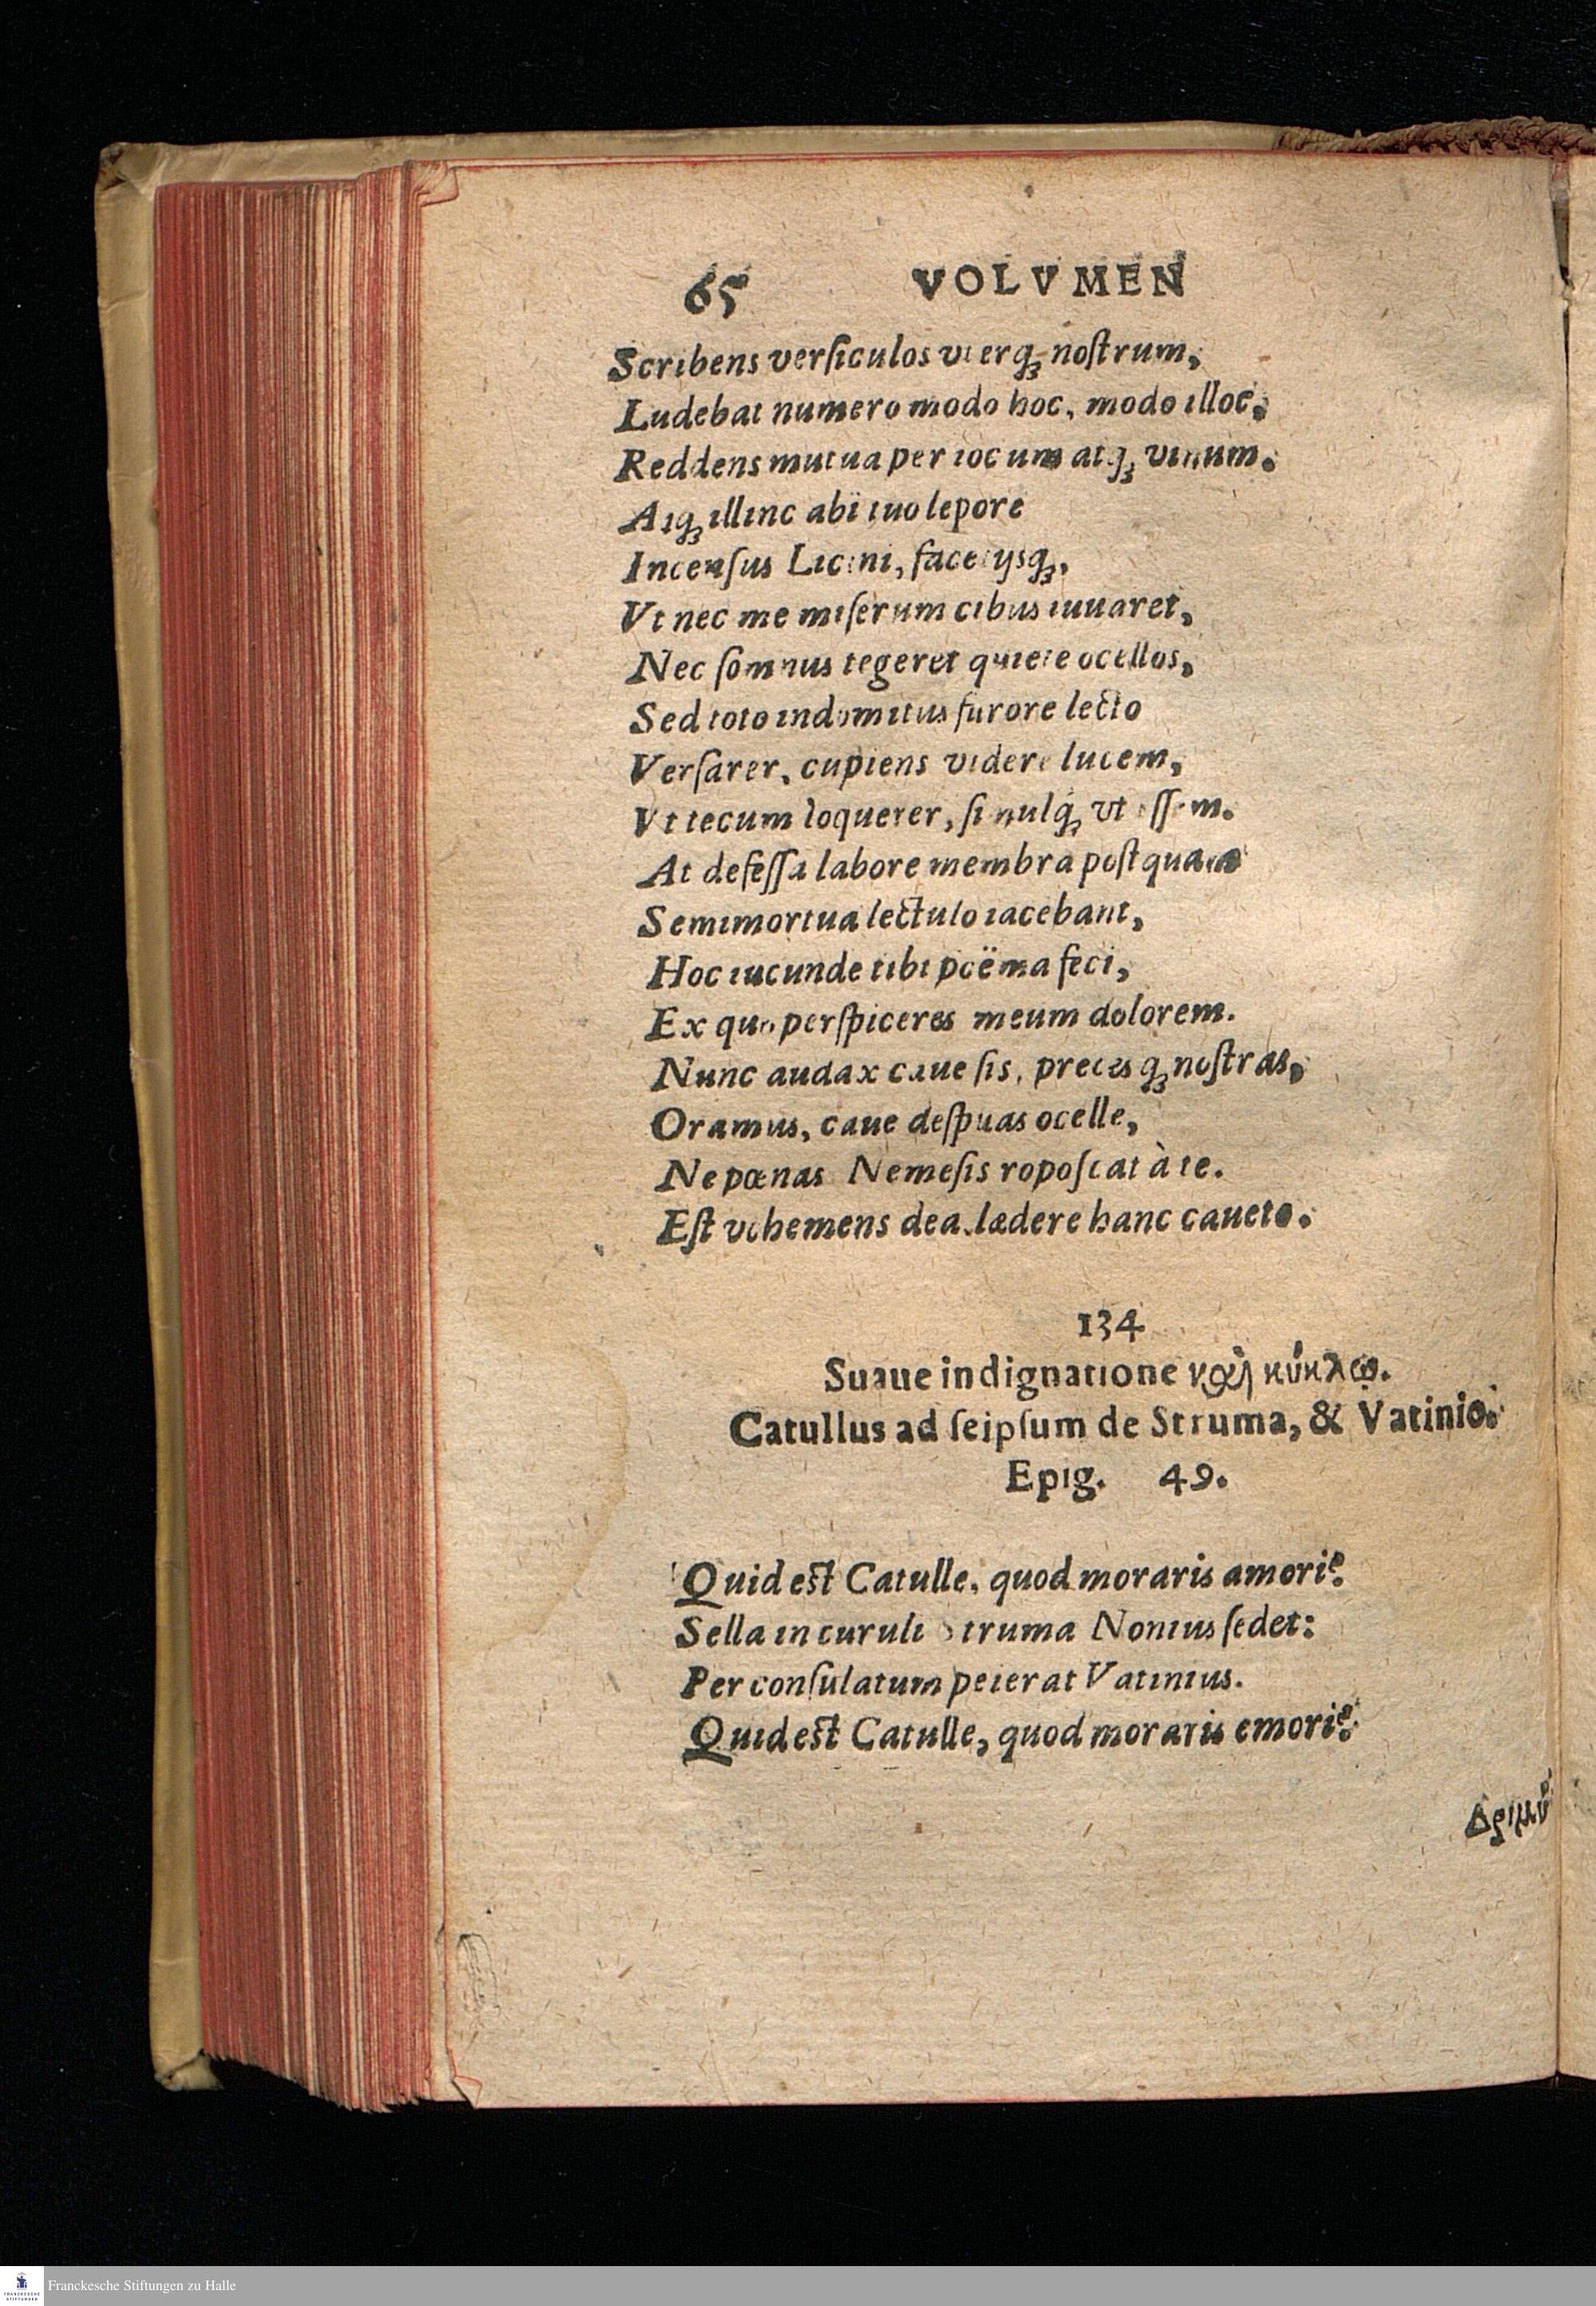 65 VOLVMEN
Scribens verſiculos vterq; noſtrum,
Ludebat numero modo hoc, modo illoc,
Reddens mutua per iocum atq; vinum.
Atq; illinc abi tuo lepore
Incenſus Licini, facetijsq;,
Vt nec me miſerum cibus iuuaret,
Nec ſomnus tegeret quiete ocellos,
Sed toto indomitus furore lecto
Verſarer, cupiens videre lucem,
Vt tecum loquerer, ſimulq; vt eſſem.
At defeſſa labore membra poſtquam
Semimortua lectulo iacebant,
Hoc iucunde tibi poëma feci,
Ex quo perſpiceres meum dolorem.
Nunc audax caue ſis, precesq; noſtras,
Oramus, caue deſpuas ocelle,
Ne pœnas Nemeſis ropoſcat à te.
Eſt vehemens dea. lædere hanc caueto.
134
Suaue indignatione καὶ κύκλῳ.
Catullus ad ſeipſum de Struma, & Vatinio.
Epig. 49.
Quid est Catulle, quod moraris amori?
Sella in curuli Struma Nonius ſedet:
Per conſulatum peierat Vatinius.
Quid est Catulle, quod moraris emori?
Δριμὺ
Franckesche Stiftungen zu Halle
FRANCKESCHE
STIFTUNGEN